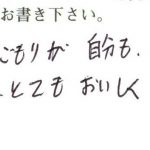 お書き下さい。
ごもりが 自分も、
とても おいしく